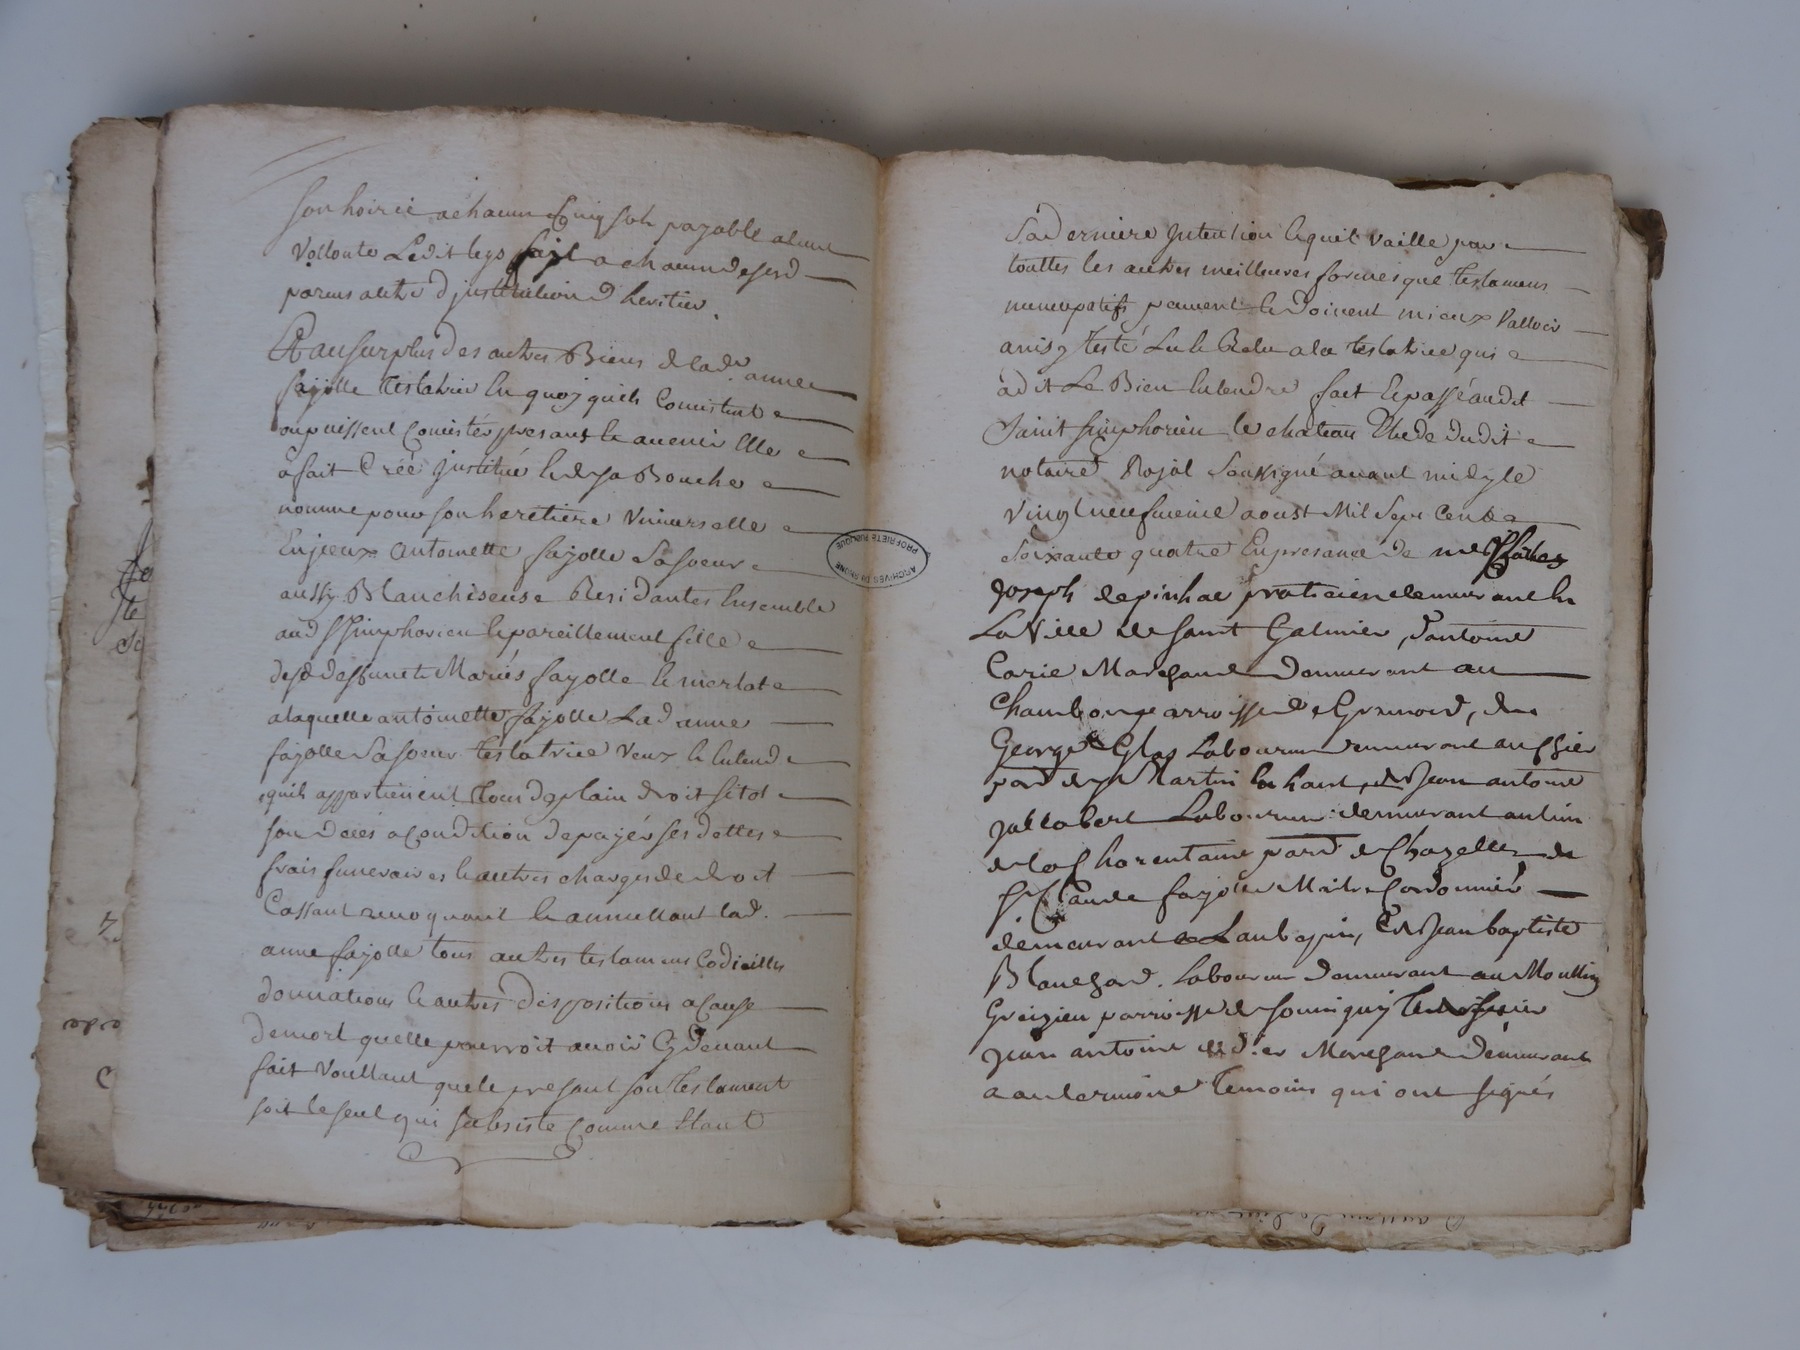 son hoirie a chacun Cinq sols payable a leur
Vollonté Ledit legs fait a chacun de sesd
parens a titre d'justitution d'heritier.
Et au surplus des autres Biens de lad. anne
fayolle testatrice En quoy quils Consistent
ou puissent Consister presants & avenir Elle
a fait Créé justitué & de sa Bouche
nommé pour son heretiere Universelle
Enjeux antoinette fayolle Sa soeur
aussy Blanchiseuse Residantes Ensemble
aud St simphorien & pareillement fille
desd deffunct Mariés fayolle & merlat
a laquelle antoinette fayolle Lad anne
fayolle Sa soeur testatrice Veux & Entend
quils appartienent tous de plain droit sitot
son deces a Condition de payer ses dettes
frais funeraires & autres charges de droit
Cassant revoquant & annullant lad.
anne fayolle tous autres testamens Codicilles
donnations & autres dispositions a Cause
de mort quelle pourroit avoir Cy devant
fait Voullant que le present son testament
soit le seul qui subsiste Comme Etant
Sa derniere Intention & quil vaille par
touttes les autres meilleures formes que testamens
nuncupatifs peuvent & doivent mieux Valloir
ainsy testé Lu & Relu a la testatrice qui
a dit Le Bien Entendre fait & passé audit
Saint simphorien le chateau Etude dudit
notaire Royal Soussigné avant midy le
vingt neufvieme aoust Mil Sept Cent
Soixante quatre En presance de me
Joseph depinhac praticien demeurant En
La Ville de saint Galmier, d'antoine
Carie Marchand Demeurant au
Chambon parroisse de Grenard, de
George Laboureur demeurant au
par de St Martin En haut, de Jean antoine
jallabert Laboureur demeurant au lieu
de la par de Chazelles, de
Sr Claude fayolle Maitre Cordonnier
demeurant a Laubepin, Et Jean baptiste
Blanchard. Laboureur demeurant au Moullin
Greizieu parroisse de & sieur
Jean antoine Marchand demeurant
a temoins qui ont signés
ARCHIVES DU RHONE
PROPRIETE PUBLIQUE